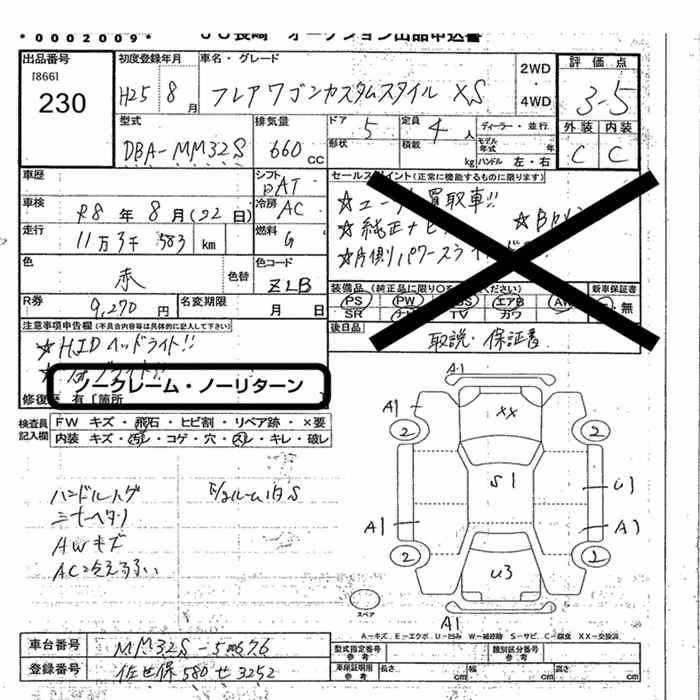 *0002009*
ＪＵ長崎 オークション出品申込書
出品番号
[866]
230
初度登録年月
H25 年 8 月
車名・グレード
フレアワゴンカスタムスタイル XS
2WD
・
4WD
評価点
3.5
外装 内装
C C
型式
DBA-MM32S
排気量
660 cc
ドア 5
形状
定員 4 人
積載 kg
ディーラー・並行
モデル年式 年
ハンドル 左・右
車歴
シフト
DAT
車検
R8 年 8 月 (22 日)
冷房
AC
走行
11万3千583 km
燃料
G
色
赤
色替
色コード
ZLB
R券
9,270 円
名変期限
月 日
セールスポイント(正常に機能するものに限ります)
☆ユーザー買取車!!
☆純正ナビ
☆片側パワースライド
装備品(純正品に限り○をしてください)
新車保証書
PS PW エアB AW
SR TV カワ 無
後日品
取説・保証書
注意事項申告欄(不具合内容等は具体的に記入して下さい)
☆HIDヘッドライト!!
ノークレーム・ノーリターン
修復歴 有 [箇所
検査員記入欄
FW キズ・飛石・ヒビ割・リペア跡・×要
内装 キズ・汚レ・コゲ・穴・スレ・キレ・破レ
ハンドルハゲ
シートヘタリ
AWキズ
AC冷え弱い
A1
A1
XX
2
2
S1
U1
A1
A1
2
2
U3
A1
スペア
A－キズ E－エクボ U－凹み W－補修跡 S－サビ C－腐食 XX－交換済
車台番号
MM32S-507676
登録番号
佐世保 580 せ 3252
型式指定番号
参考
類別区分番号
参考
車検証明限
参考
長さ cm
幅 cm
高さ cm